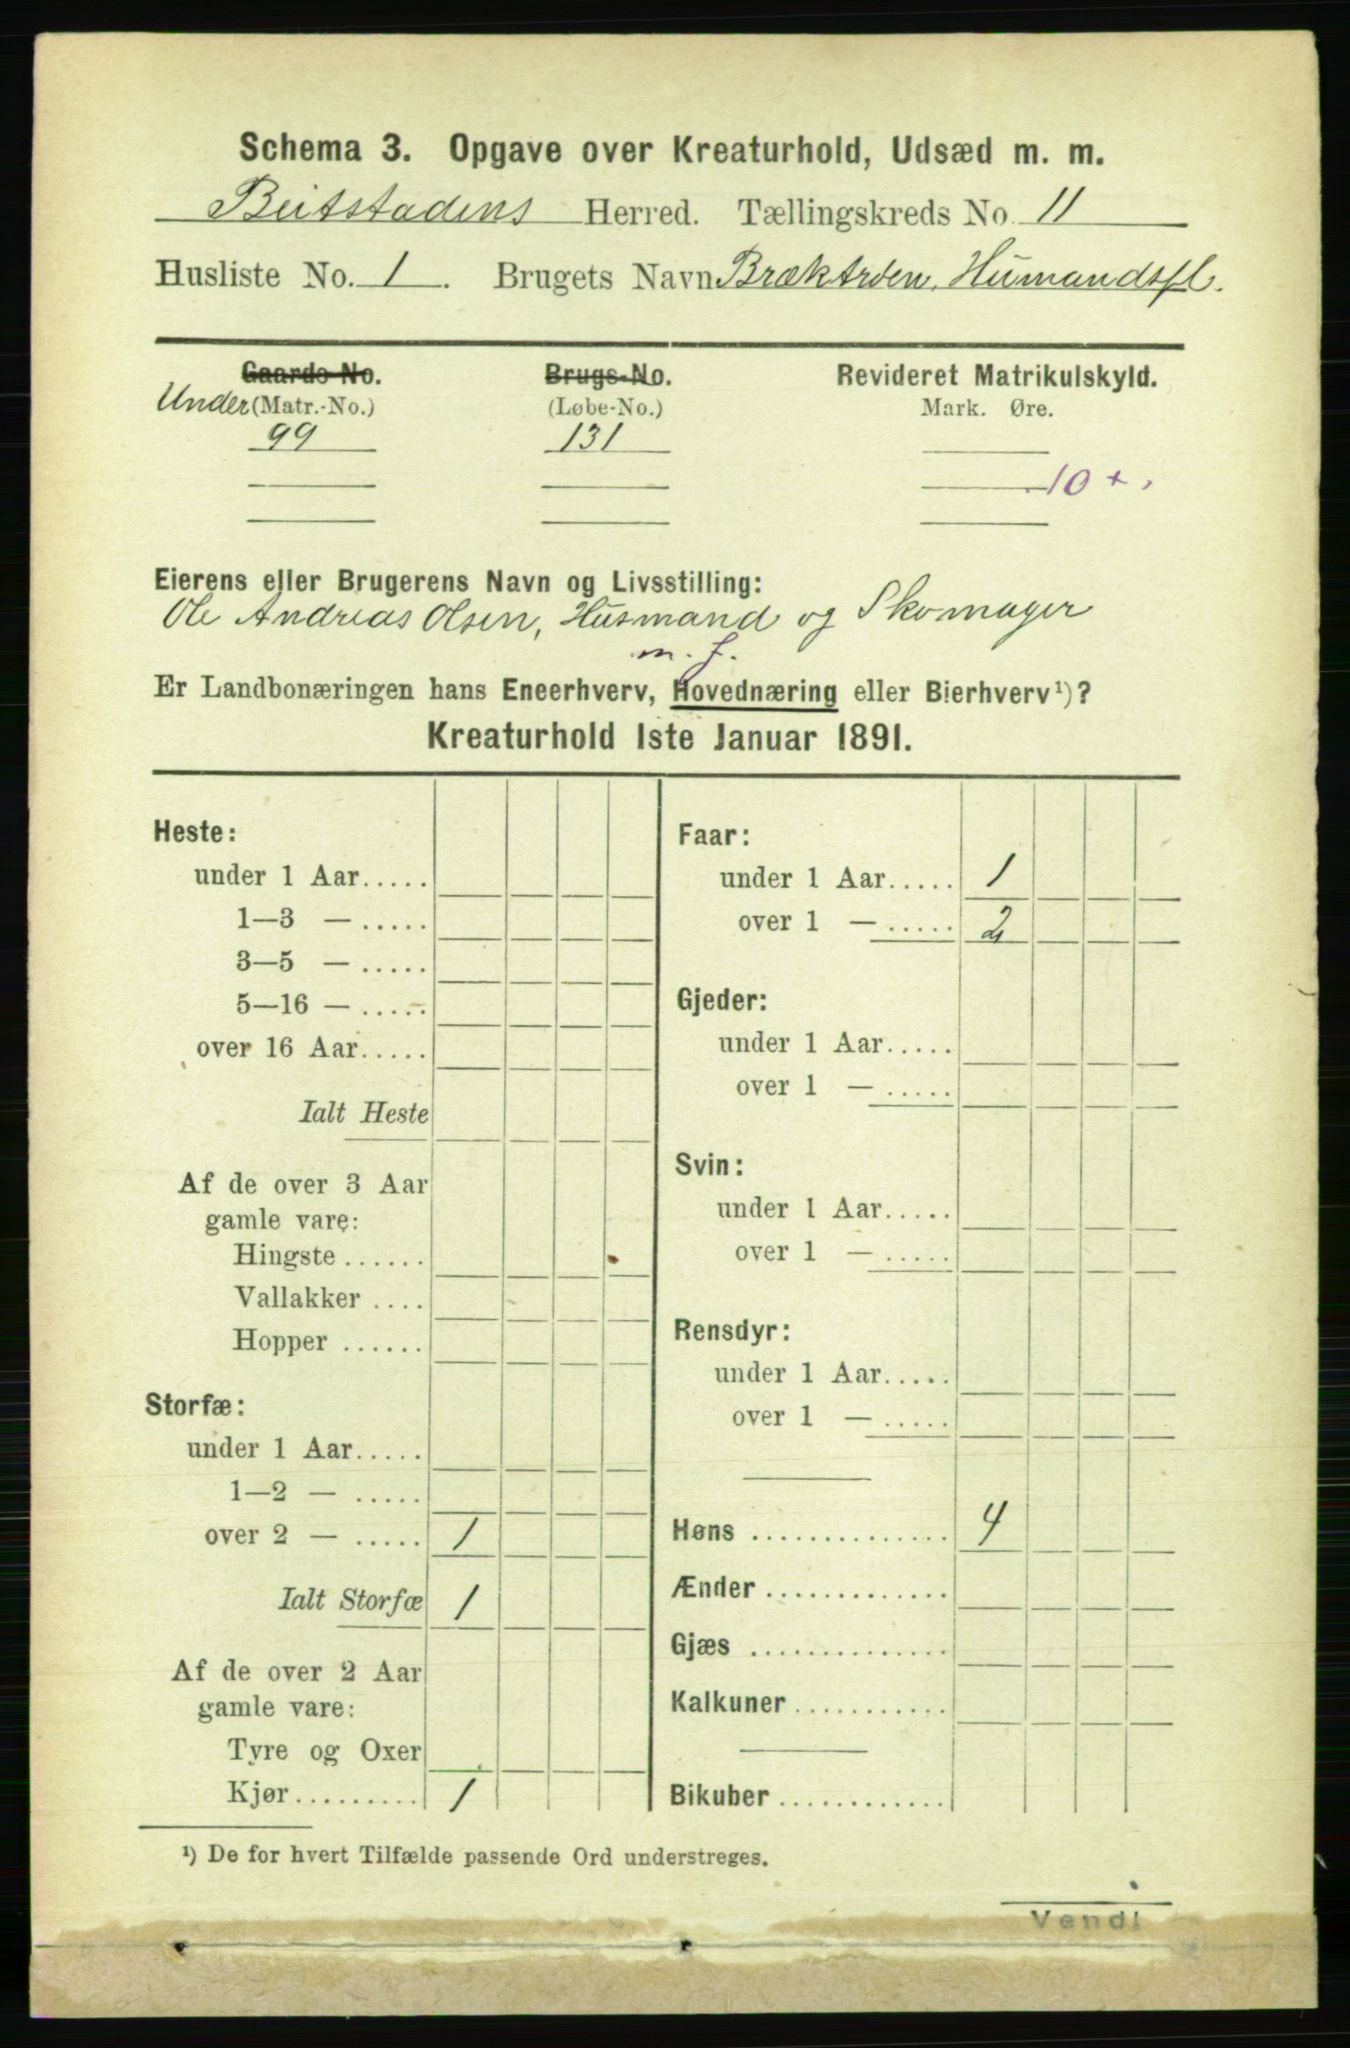 Schema 3. Opgave over Kreaturhold, Udsæd m. m.
Beitstadens Herred. Tællingskreds No. 11
Husliste No. 1. Brugets Navn Brækarden, Humandspl.
Gaards-No. Brugs-No. Revideret Matrikulskyld.
Under (Matr.-No.) (Løbe-No.) Mark. Øre.
99 131
10 +
Eierens eller Brugerens Navn og Livsstilling:
Ole Andreas Olsen, Husmand og Skomager
m. f.
Er Landbonæringen hans Eneerhverv, Hovednæring eller Bierhverv¹)?
Kreaturhold 1ste Januar 1891.
Heste:
under 1 Aar.....
1—3 — .....
3—5 — .....
5—16 — .....
over 16 Aar.....
Ialt Heste
Af de over 3 Aar
gamle vare:
Hingste ......
Vallakker ....
Hopper ......
Storfæ:
under 1 Aar.....
1—2 — .....
over 2 — ..... 1
Ialt Storfæ 1
Af de over 2 Aar
gamle vare:
Tyre og Oxer
Kjør.......... 1
Faar:
under 1 Aar..... 1
over 1 — ..... 2
Gjeder:
under 1 Aar.....
over 1 — .....
Svin:
under 1 Aar.....
over 1 — .....
Rensdyr:
under 1 Aar.....
over 1 — .....
Høns .............. 4
Ænder .............
Gjæs ..............
Kalkuner ...........
Bikuber ............
¹) De for hvert Tilfælde passende Ord understreges.
Vend!